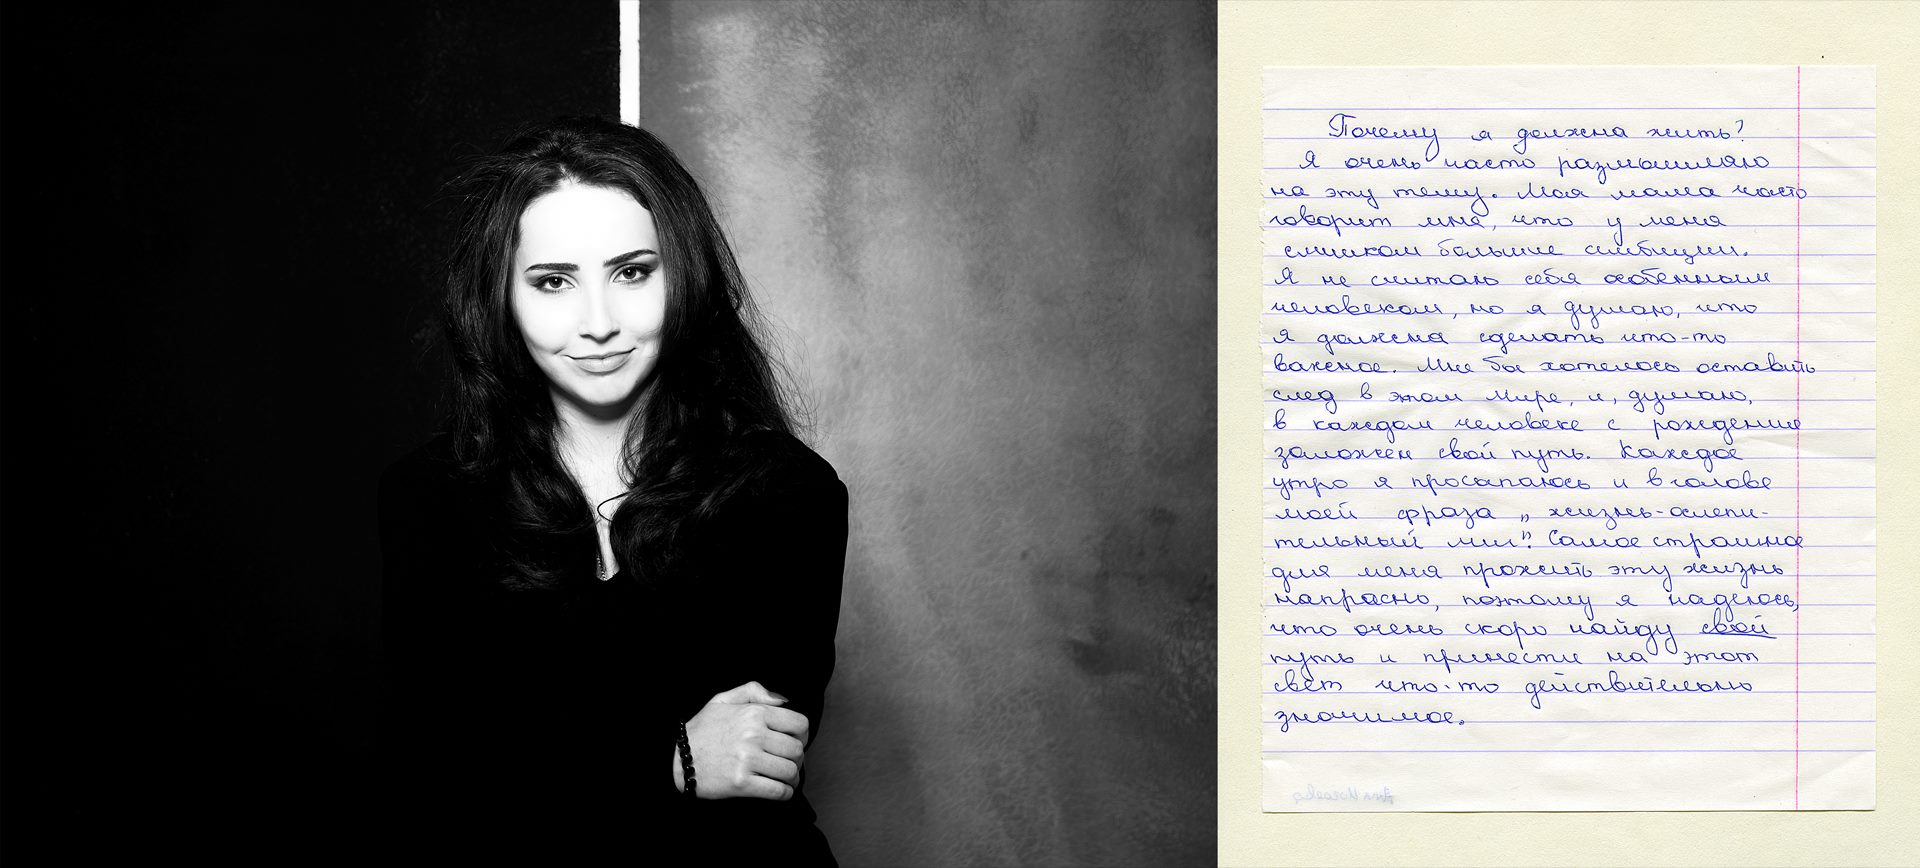 Почему я должна жить?
Я очень часто размышляю
на эту тему. Моя мама часто
говорит мне, что у меня
слишком большие амбиции.
Я не считаю себя особенным
человеком, но я думаю, что
я должна сделать что-то
важное. Мне бы хотелось оставить
след в этом мире, и, думаю,
в каждом человеке с рождение
заложен свой путь. Каждое
утро я просыпаюсь и в голове
моей фраза „жизнь-ослепи-
тельный миг". Самое страшное
для меня прожить эту жизнь
напрасно, поэтому я надеюсь,
что очень скоро найду свой
путь и принести на этот
свет что-то действительно
значимое.